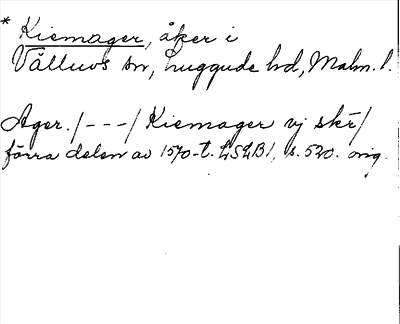 * Kiemager, åker i
Välluvs sn, Luggude hd, Malm. l.
Ager. /---/ Kiemager vj skr/
förra delen av 1570-t. LSLB1, s. 520. orig.